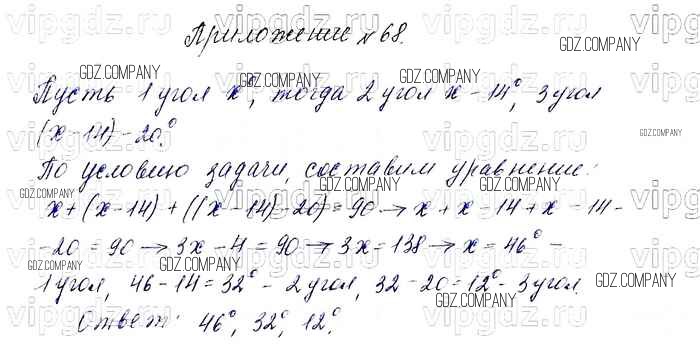 Приложение №68.
Пусть 1 угол x°, тогда 2 угол x - 14°, 3 угол
(x-14)-20.°
По условию задачи, составим уравнение:
x+(x-14)+((x-14)-20)=90 → x+x-14+x-14-
-20=90 → 3x-4=90 → 3x=138 → x=46° -
1 угол, 46-14=32° - 2 угол, 32-20=12° - 3 угол.
Ответ: 46°, 32°, 12°.